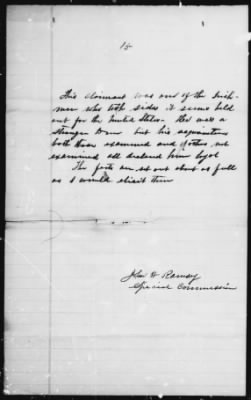 15
This claimant was one of the Irish-
men who both sides it seems held
out for the United States. He was a
stranger to me but his acquaintances
both those examined and others not
examined all declared him loyal
The facts are set out about as full
as I would elicit them
John D Ramsey
Special Commissioner